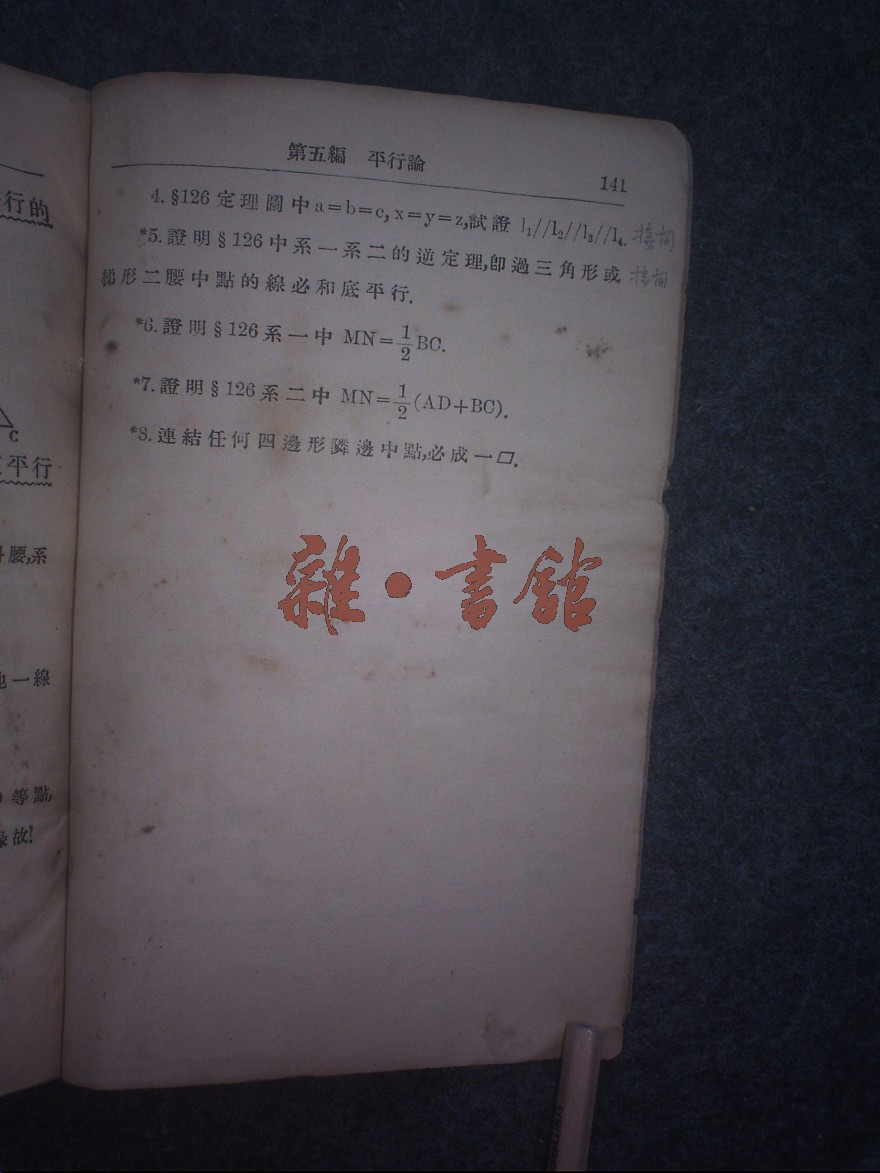 第五編 平行論
141
4. §126 定理圖中 a=b=c, x=y=z,試證 l₁//l₂//l₃//l₄.
*5. 證明 §126 中系一系二的逆定理,卽過三角形或
梯形二腰中點的線必和底平行.
*6. 證明 §126 系一中 MN=1/2 BC.
*7. 證明 §126 系二中 MN=1/2 (AD+BC).
*8. 連結任何四邊形隣邊中點,必成一▱.
雜•書館
行的
C
平行
腰,系
一線
等點,
故!